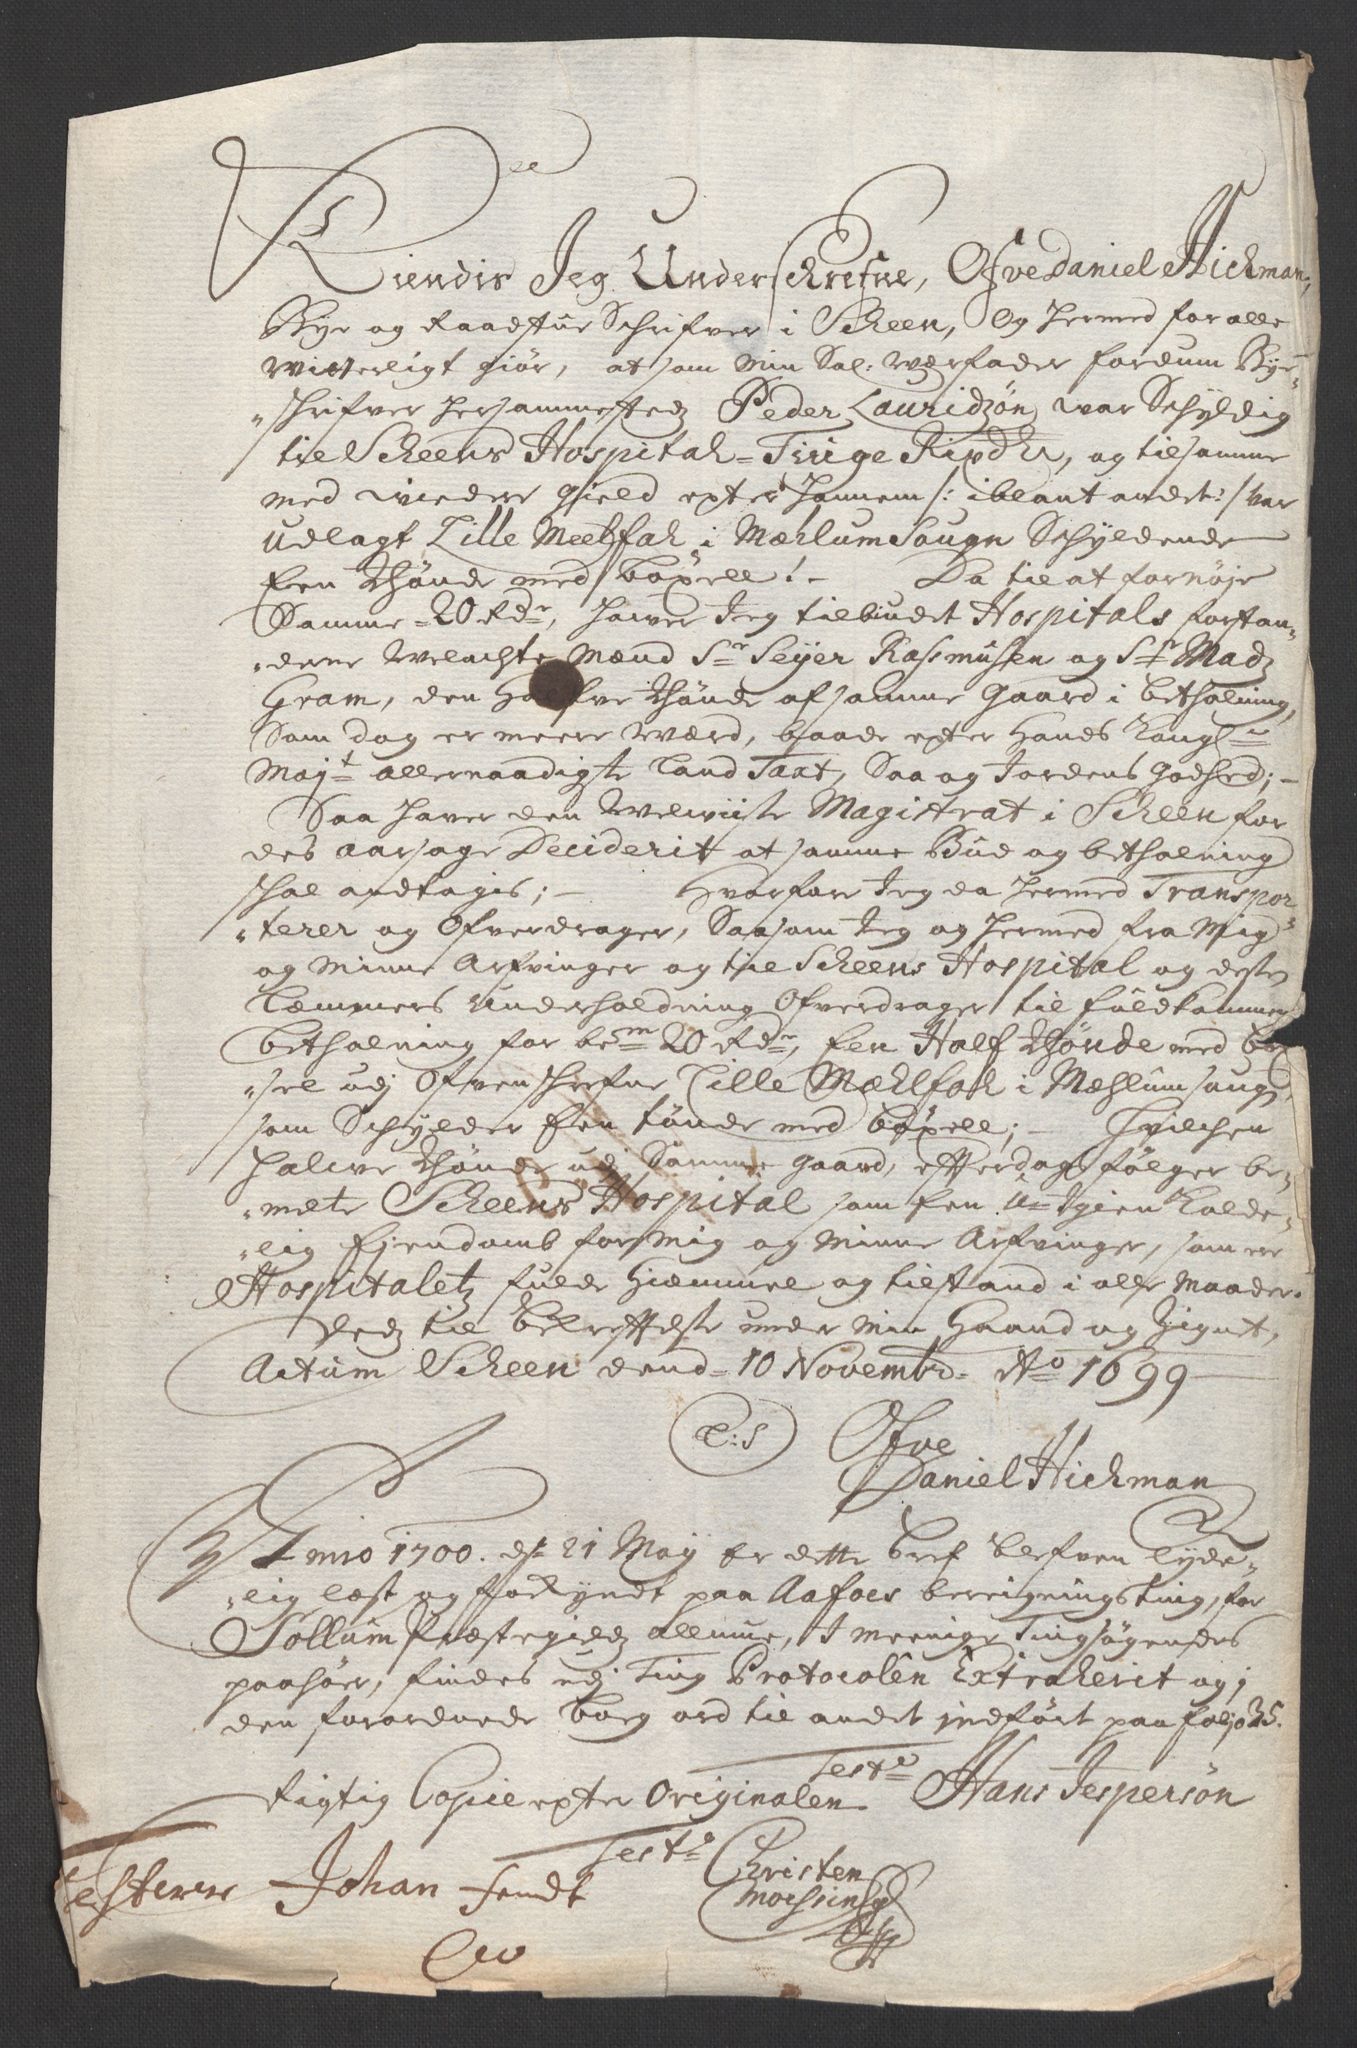 Kiendis Jeg Underschrefne, Ofve Daniel Hickman,
Bye og Raadstue Schrifver i Scheen, Og hermed for alle
witterligt giör, at som min Sal: werfader fordum Bye-
schrifver hersammestedz Peder Lauridzön war Schyldig
til Scheens Hospital = Tiuge Rixdlr, og tilsamme
med videre gield epter hannem /: iblant andet :/ var
udlagt Lille Meehlfald i Mælum Sougn Schyldende
Een thönde med böxell! - Da til at fornöje
Samme = 20 Rdr, hawer Jeg tilbudet Hospitals forstan-
derne Welachte Mænd Sr Seyer Rasmusen og Sr Madz
Gram, den Halfve thönde af samme gaard i betholning,
Som dog er meere værd, baade epter Hands Kongle
Mayt allernaadigste Land Taxt, Saa og Jordens godhed; -
Saa haver den Welwiise Magistrat i Scheen for
des aarsage Deciderit at samme Bud og betholning
schal andtagis; - Hvorfore Jeg da hermed Transpor-
terer og Ofverdrager, Saasom Jeg og hermed fra Mig
og Minne Arfvinger og til Scheens Hospital og destes
Lemmers underholdning Ofverdrager til fuldkommen
betholning for bem 20 Rdr, Een Half thönde med böx-
sel udj Ofvenschrefne Lille Mæhlfald i Mæhlum Sougn
som Schylder Een tönde med böxell; - Hvilchen
halwe thönde udj Samme gaard, efterdags fölger be-
melte Scheens Hospital som Een U-Igien Kalde-
lig Ejendomb for Mig og Minne Arfvinger, som er
Hospitaletz fulde Hiemmel og tilstand i alle Maader.
Dedz til bekreftelse under min Haand og Zignet,
Actum Scheen dend 10 Novembr. Ao 1699
L:S Ofve
Daniel Hickman
Anno 1700. ds 21 Maij er dette bref blefven lyde-
lig læst og forkyndt paa Aafoes bereigningsting, for
Sollum Præstegieldz allmue, I meenige Tingsögendes
paahör, findes udj Ting Protocolen Extraherit og j
den forordnede bog ord til andet jndfört paa folio 35.
Teste Hans Jespersön
Rigtig Copie epter Originalen
Teste Christen
Testerer Johan Fendt